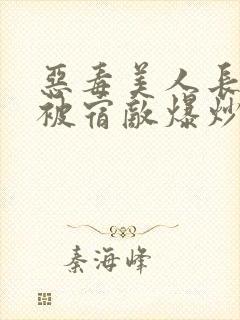 惡毒美人長
被宿敵爆炒
秦海峰